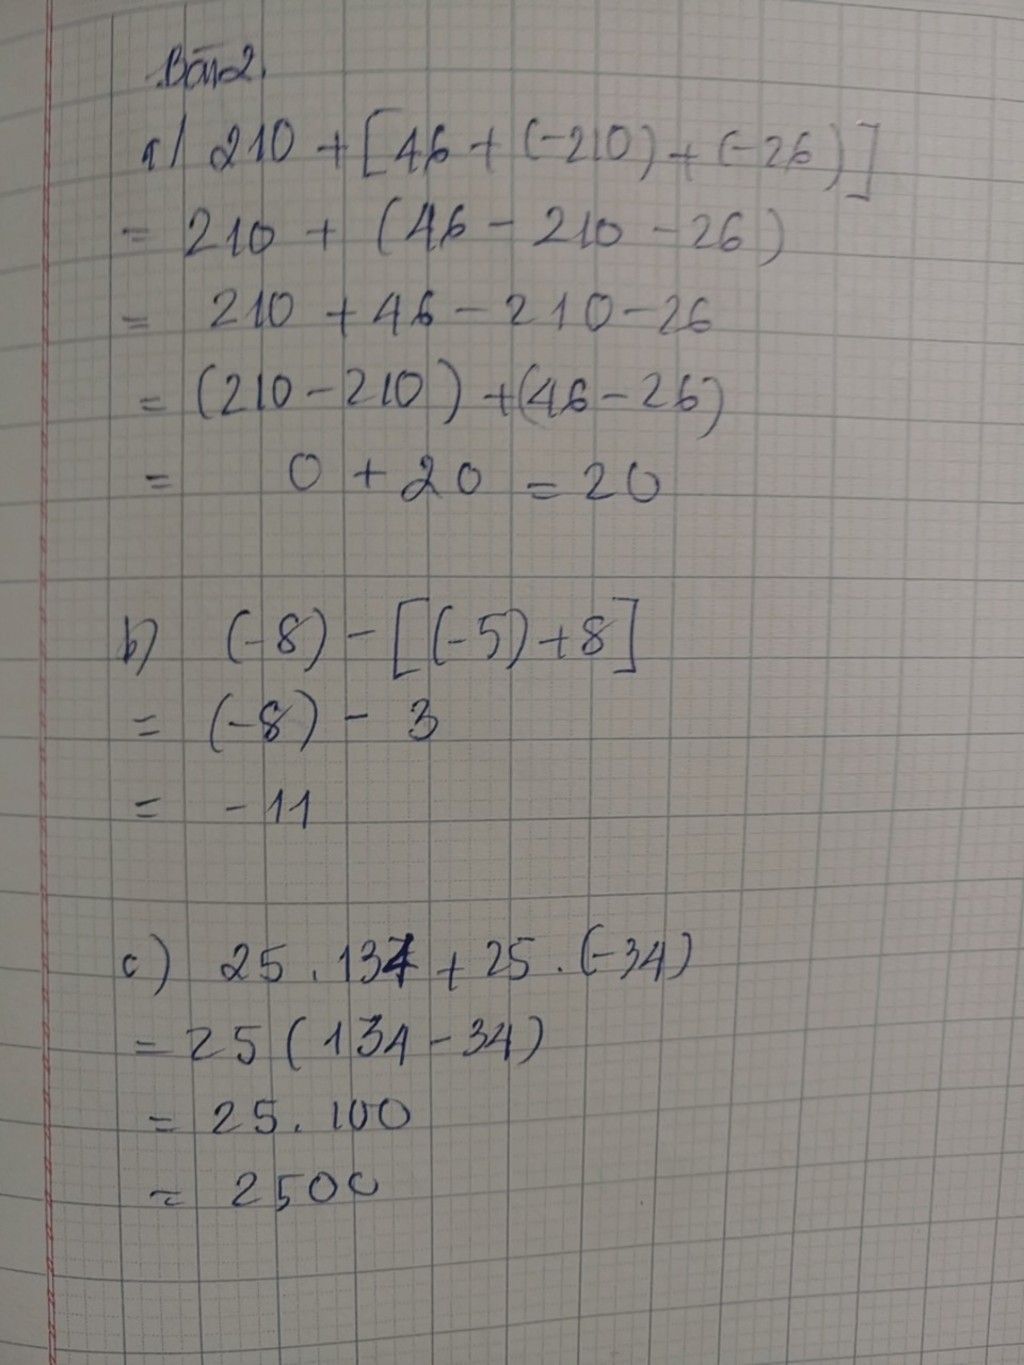 Bài 2.
a) 210 + [46 + (-210) + (-26)]
= 210 + (46 - 210 - 26)
= 210 + 46 - 210 - 26
= (210 - 210) + (46 - 26)
= 0 + 20 = 20
b) (-8) - [(-5) + 8]
= (-8) - 3
= - 11
c) 25 . 134 + 25 . (-34)
= 25 (134 - 34)
= 25 . 100
= 2500